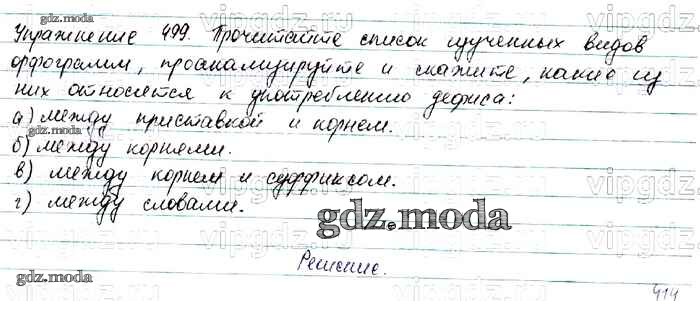 Упражнение 499. Прочитайте список изученных видов
орфограмм, проанализируйте и скажите, какие из
них относятся к употреблению дефиса:
а) между приставкой и корнем.
б) между корнями.
в) между корнем и суффиксом.
г) между словами.
Решение.
414
gdz.moda
gdz.moda
gdz.moda
gdz.moda
vipgdz
vipgdz
vipgdz
vipgdz